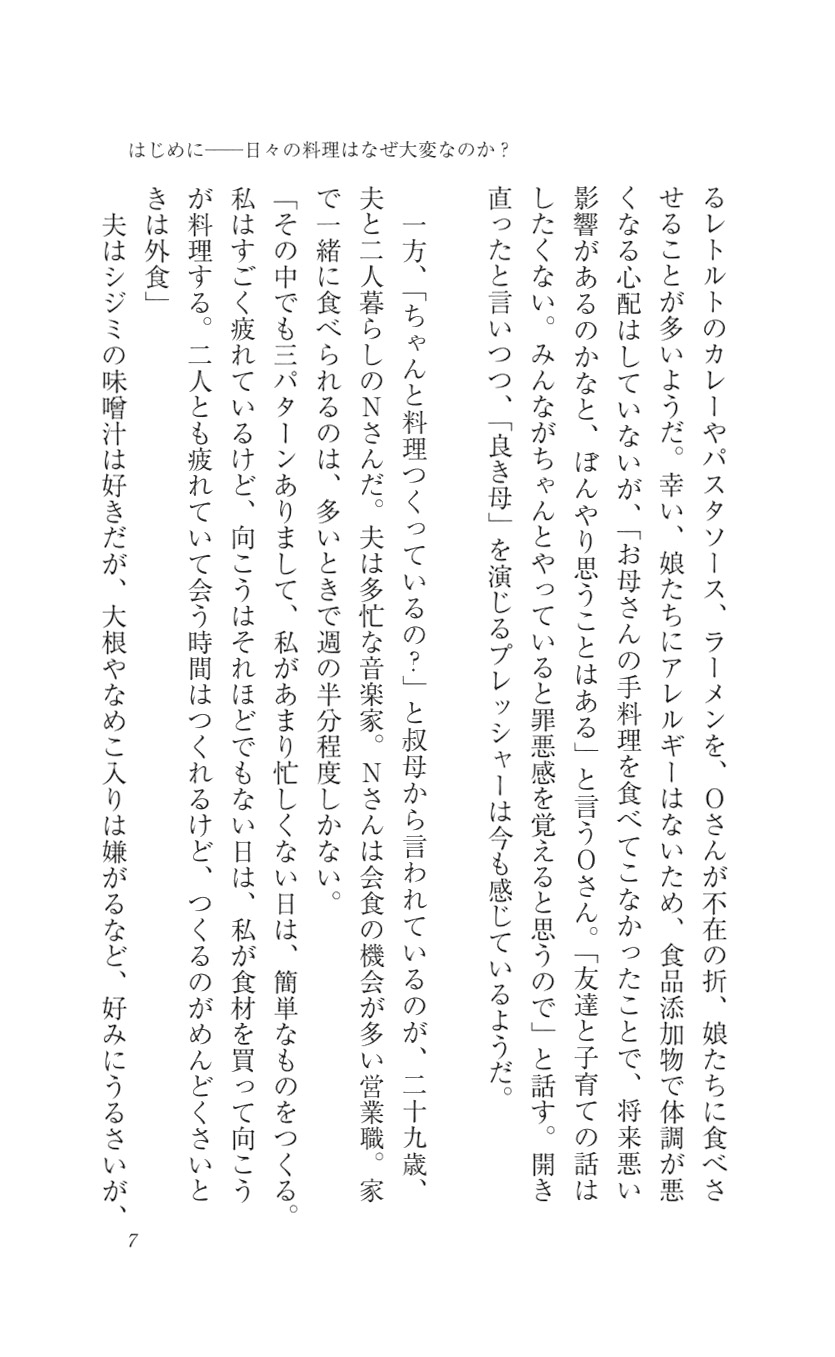 はじめに──日々の料理はなぜ大変なのか?
るレトルトのカレーやパスタソース、ラーメンを、Oさんが不在の折、娘たちに食べさ
せることが多いようだ。幸い、娘たちにアレルギーはないため、食品添加物で体調が悪
くなる心配はしていないが、「お母さんの手料理を食べてこなかったことで、将来悪い
影響があるのかなと、ぼんやり思うことはある」と言うOさん。「友達と子育ての話は
したくない。みんながちゃんとやっていると罪悪感を覚えると思うので」と話す。開き
直ったと言いつつ、「良き母」を演じるプレッシャーは今も感じているようだ。
一方、「ちゃんと料理つくっているの?」と叔母から言われているのが、二十九歳、
夫と二人暮らしのNさんだ。夫は多忙な音楽家。Nさんは会食の機会が多い営業職。家
で一緒に食べられるのは、多いときで週の半分程度しかない。
「その中でも三パターンありまして、私があまり忙しくない日は、簡単なものをつくる。
私はすごく疲れているけど、向こうはそれほどでもない日は、私が食材を買って向こう
が料理する。二人とも疲れていて会う時間はつくれるけど、つくるのがめんどくさいと
きは外食」
夫はシジミの味噌汁は好きだが、大根やなめこ入りは嫌がるなど、好みにうるさいが、
7